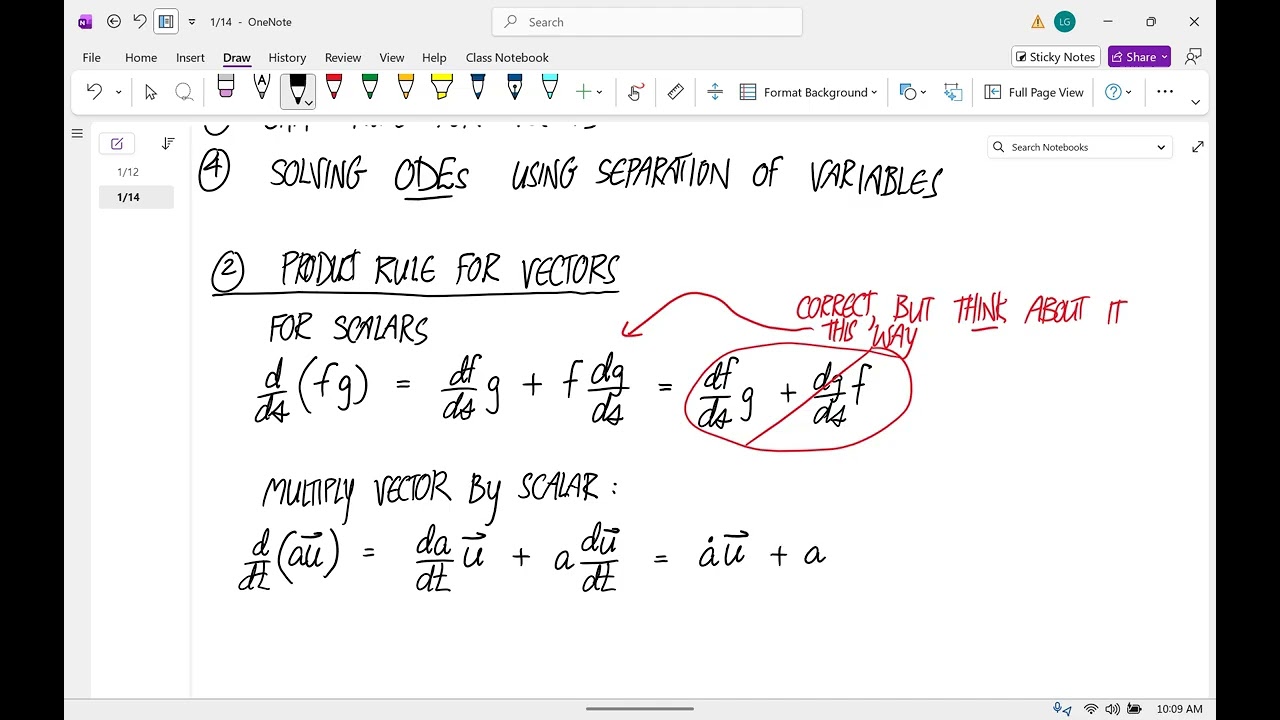 1/14 - OneNote
Search
LG
File Home Insert Draw History Review View Help Class Notebook
Sticky Notes Share
Format Background Full Page View
Search Notebooks
1/12
1/14
④ SOLVING ODEs USING SEPARATION OF VARIABLES
② PRODUCT RULE FOR VECTORS
CORRECT, BUT THINK ABOUT IT
THIS WAY
FOR SCALARS
d/ds (fg) = df/ds g + f dg/ds = df/ds g + dg/ds f
MULTIPLY VECTOR BY SCALAR:
d/dt (au⃗) = da/dt u⃗ + a du⃗/dt = ȧu⃗ + a
10:09 AM